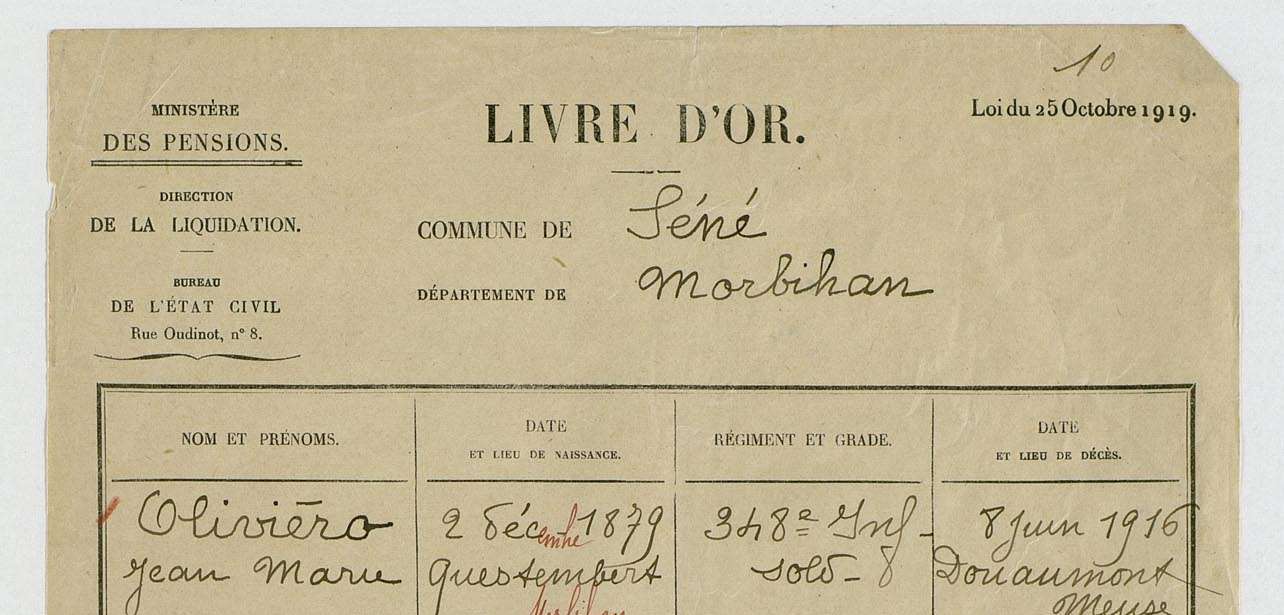 10
MINISTÈRE
DES PENSIONS.
DIRECTION
DE LA LIQUIDATION.
BUREAU
DE L'ÉTAT CIVIL
Rue Oudinot, n° 8.
LIVRE D'OR.
Loi du 25 Octobre 1919.
COMMUNE DE Séné
DÉPARTEMENT DE Morbihan
NOM ET PRÉNOMS.
DATE
ET LIEU DE NAISSANCE.
RÉGIMENT ET GRADE.
DATE
ET LIEU DE DÉCÈS.
Oliviéro
Jean Marie
2 Décembre 1879
Questembert
Morbihan
348e Inf -
sold -
8 Juin 1916
Douaumont
Meuse